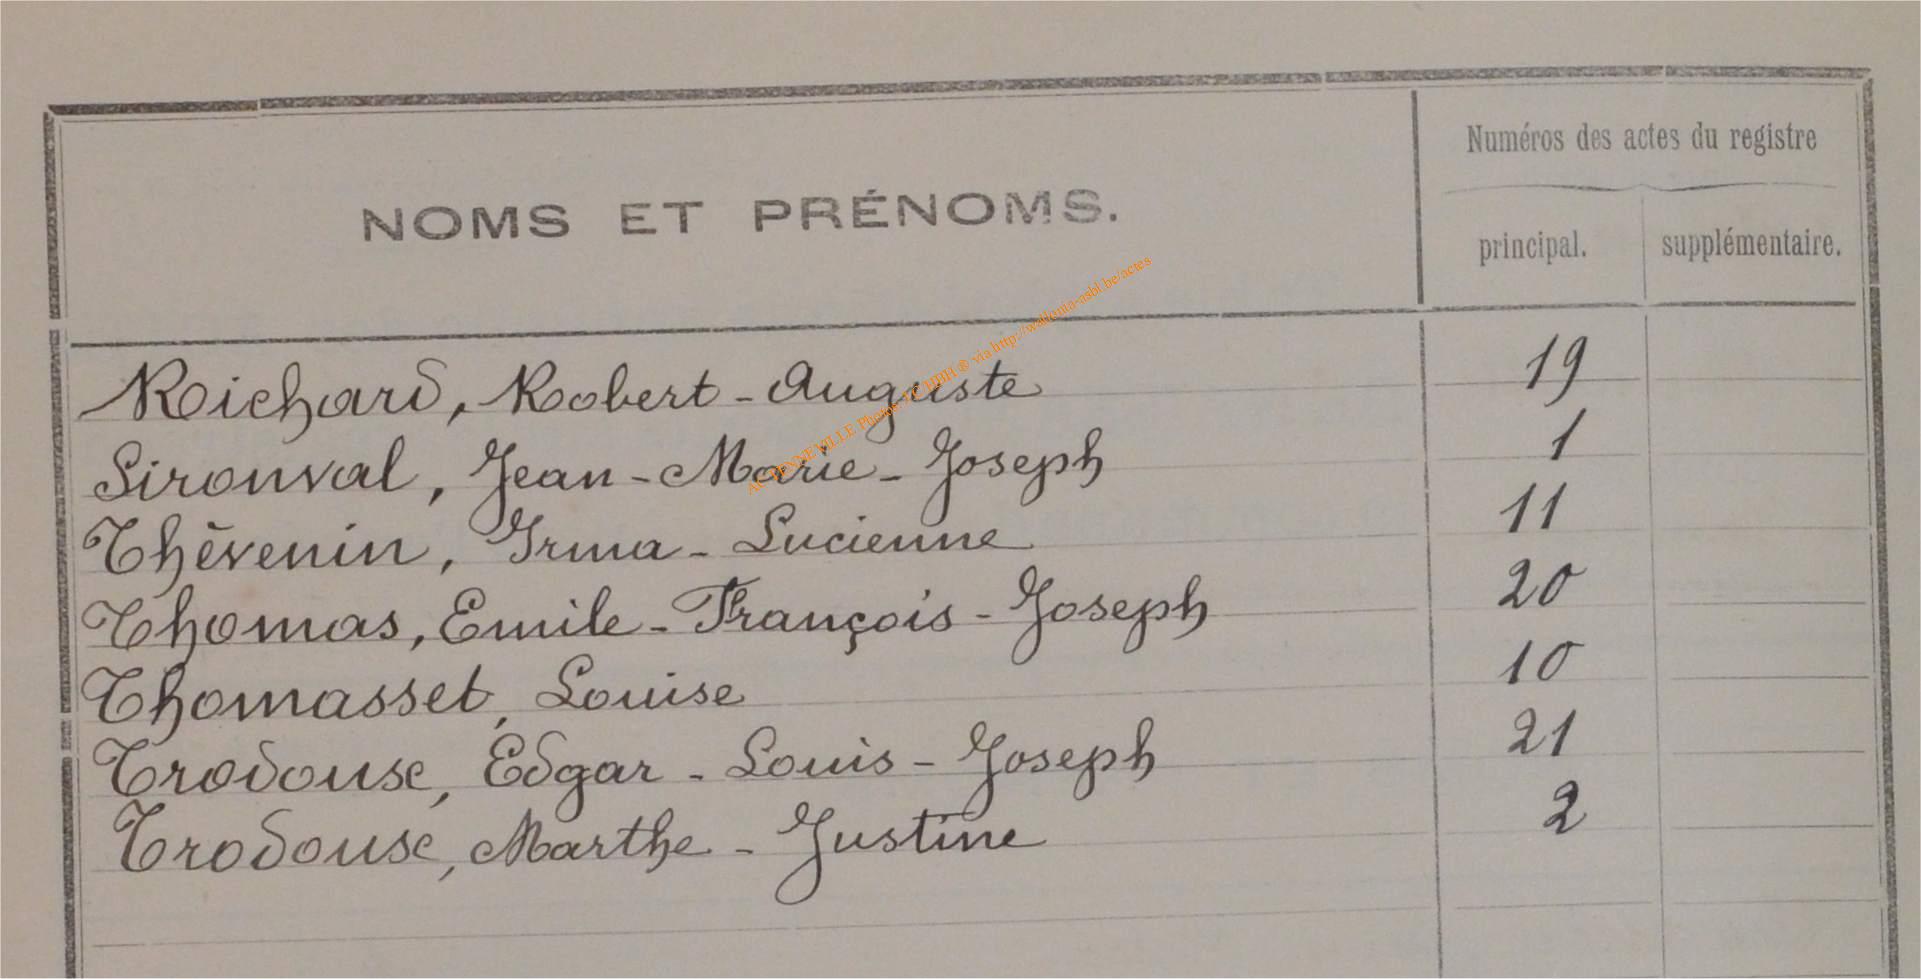 Numéros des actes du registre
NOMS ET PRÉNOMS.
principal. supplémentaire.
Richard, Robert-Auguste 19
Sironval, Jean-Marie-Joseph 1
Thèvenin, Irma-Lucienne 11
Thomas, Emile-François-Joseph 20
Thomasset, Louise 10
Trodouse, Edgar-Louis-Joseph 21
Trodouse, Marthe-Justine 2
via http://wallonia-asbl.be/actes